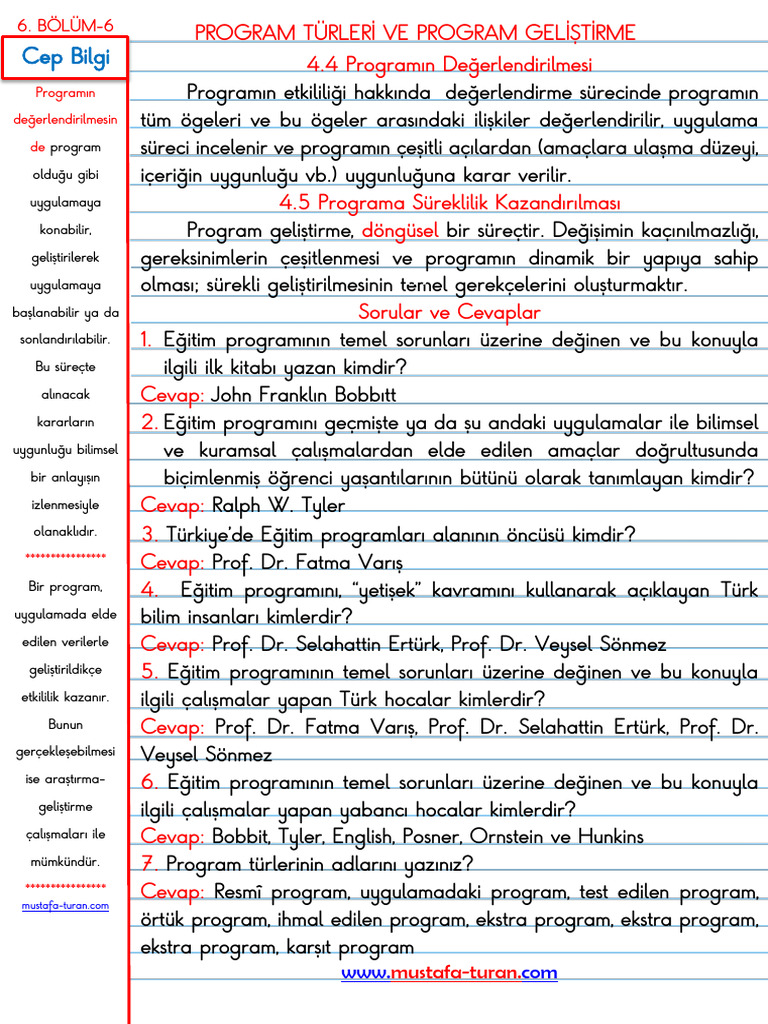 6. BÖLÜM-6
Cep Bilgi
Programın
değerlendirilmesin
de program
olduğu gibi
uygulamaya
konabilir,
geliştirilerek
uygulamaya
başlanabilir ya da
sonlandırılabilir.
Bu süreçte
alınacak
kararların
uygunluğu bilimsel
bir anlayışın
izlenmesiyle
olanaklıdır.
****************
Bir program,
uygulamada elde
edilen verilerle
geliştirildikçe
etkililik kazanır.
Bunun
gerçekleşebilmesi
ise araştırma-
geliştirme
çalışmaları ile
mümkündür.
****************
mustafa-turan.com
PROGRAM TÜRLERİ VE PROGRAM GELİŞTİRME
4.4 Programın Değerlendirilmesi
Programın etkililiği hakkında değerlendirme sürecinde programın
tüm ögeleri ve bu ögeler arasındaki ilişkiler değerlendirilir, uygulama
süreci incelenir ve programın çeşitli açılardan (amaçlara ulaşma düzeyi,
içeriğin uygunluğu vb.) uygunluğuna karar verilir.
4.5 Programa Süreklilik Kazandırılması
Program geliştirme, döngüsel bir süreçtir. Değişimin kaçınılmazlığı,
gereksinimlerin çeşitlenmesi ve programın dinamik bir yapıya sahip
olması; sürekli geliştirilmesinin temel gerekçelerini oluşturmaktır.
Sorular ve Cevaplar
1. Eğitim programının temel sorunları üzerine değinen ve bu konuyla
ilgili ilk kitabı yazan kimdir?
Cevap: John Franklin Bobbıtt
2. Eğitim programını geçmişte ya da şu andaki uygulamalar ile bilimsel
ve kuramsal çalışmalardan elde edilen amaçlar doğrultusunda
biçimlenmiş öğrenci yaşantılarının bütünü olarak tanımlayan kimdir?
Cevap: Ralph W. Tyler
3. Türkiye’de Eğitim programları alanının öncüsü kimdir?
Cevap: Prof. Dr. Fatma Varış
4. Eğitim programını, “yetişek” kavramını kullanarak açıklayan Türk
bilim insanları kimlerdir?
Cevap: Prof. Dr. Selahattin Ertürk, Prof. Dr. Veysel Sönmez
5. Eğitim programının temel sorunları üzerine değinen ve bu konuyla
ilgili çalışmalar yapan Türk hocalar kimlerdir?
Cevap: Prof. Dr. Fatma Varış, Prof. Dr. Selahattin Ertürk, Prof. Dr.
Veysel Sönmez
6. Eğitim programının temel sorunları üzerine değinen ve bu konuyla
ilgili çalışmalar yapan yabancı hocalar kimlerdir?
Cevap: Bobbit, Tyler, English, Posner, Ornstein ve Hunkins
7. Program türlerinin adlarını yazınız?
Cevap: Resmî program, uygulamadaki program, test edilen program,
örtük program, ihmal edilen program, ekstra program, ekstra program,
ekstra program, karşıt program
www.mustafa-turan.com